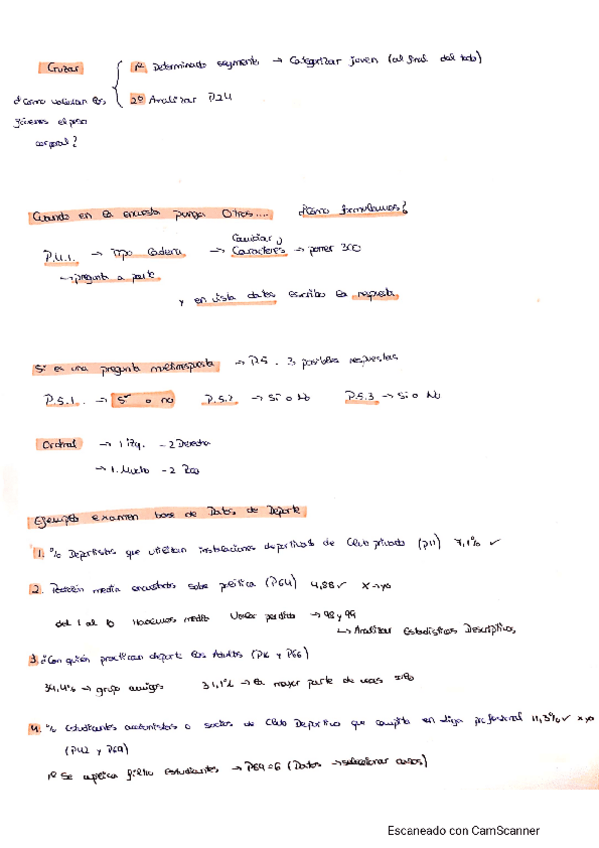 Cruzar
1º Determinado segmento → Categorizar joven (al final del todo)
¿Cómo valoran los jóvenes el peso corporal?
2º Analizar P24
Cuando en la encuesta ponga Otros.... ¿Cómo formulamos?
P.4.1. → Tipo Cadena → Cambiar Caracteres → poner 300
→ pregunta a parte
y en vista datos escribo la respuesta
Si es una pregunta multirespuesta → P5. 3 posibles respuestas
P.5.1. → Sí o no P.5.2 → Sí o No P.5.3 → Sí o No
Ordinal → 1 izq. - 2 Derecha
→ 1. Mucho - 2 Poco
Ejemplo examen base de Datos de Deporte
1. % Deportistas que utilizan instalaciones deportivas de Club privado (P11) 7,1% ✓
2. Posición media encuestados sobre política (P64) 4,88 ✓ x → yo
del 1 al 10 Hacemos media Valor perdido → 98 y 99
↳ Analizar Estadísticos Descriptivos
3. ¿Con quién practican deporte los Adultos (P16 y P66)
34,4% → grupo amigos 31,1% → la mayor parte de veces solo
4. % Estudiantes accionistas o socios de Club Deportivo que compita en liga profesional 11,3% ✓ x yo
(P42 y P69)
1º Se aplica filtro estudiantes → P69=6 (Datos → seleccionar casos)
Escaneado con CamScanner